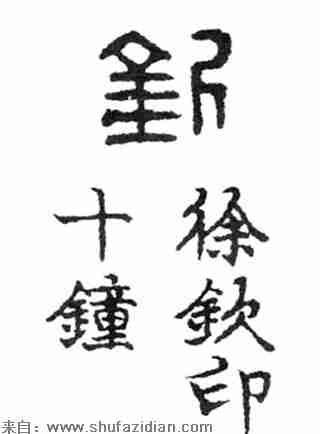 欽
徐欽印
十鐘
来自：www.shufazidian.com